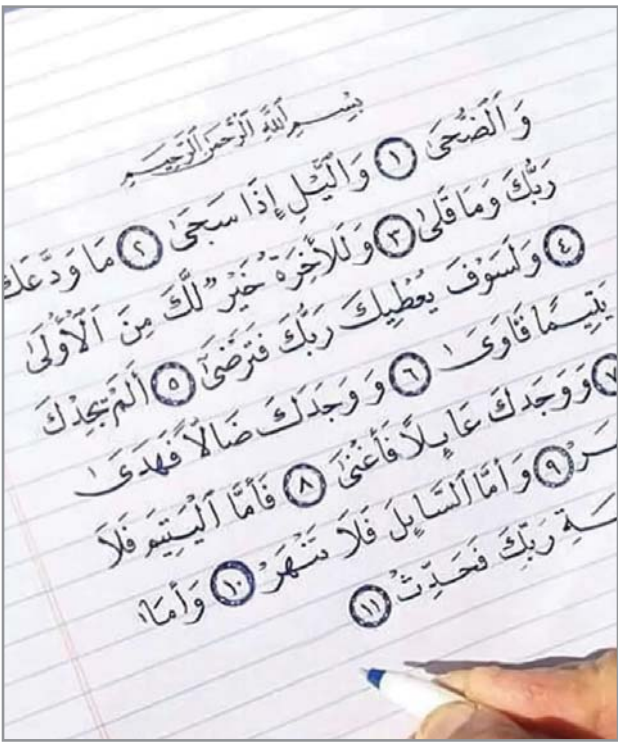 بِسْمِ اللَّهِ الرَّحْمَٰنِ الرَّحِيمِ
وَالضُّحَىٰ ١ وَاللَّيْلِ إِذَا سَجَىٰ ٢ مَا وَدَّعَكَ
رَبُّكَ وَمَا قَلَىٰ ٣ وَلَلْآخِرَةُ خَيْرٌ لَّكَ مِنَ الْأُولَىٰ
٤ وَلَسَوْفَ يُعْطِيكَ رَبُّكَ فَتَرْضَىٰ ٥ أَلَمْ يَجِدْكَ
يَتِيمًا فَآوَىٰ ٦ وَوَجَدَكَ ضَالًّا فَهَدَىٰ
٧ وَوَجَدَكَ عَائِلًا فَأَغْنَىٰ ٨ فَأَمَّا الْيَتِيمَ فَلَا
ـهَرْ ٩ وَأَمَّا السَّائِلَ فَلَا تَنْهَرْ ١٠ وَأَمَّا
ـمَةِ رَبِّكَ فَحَدِّثْ ١١